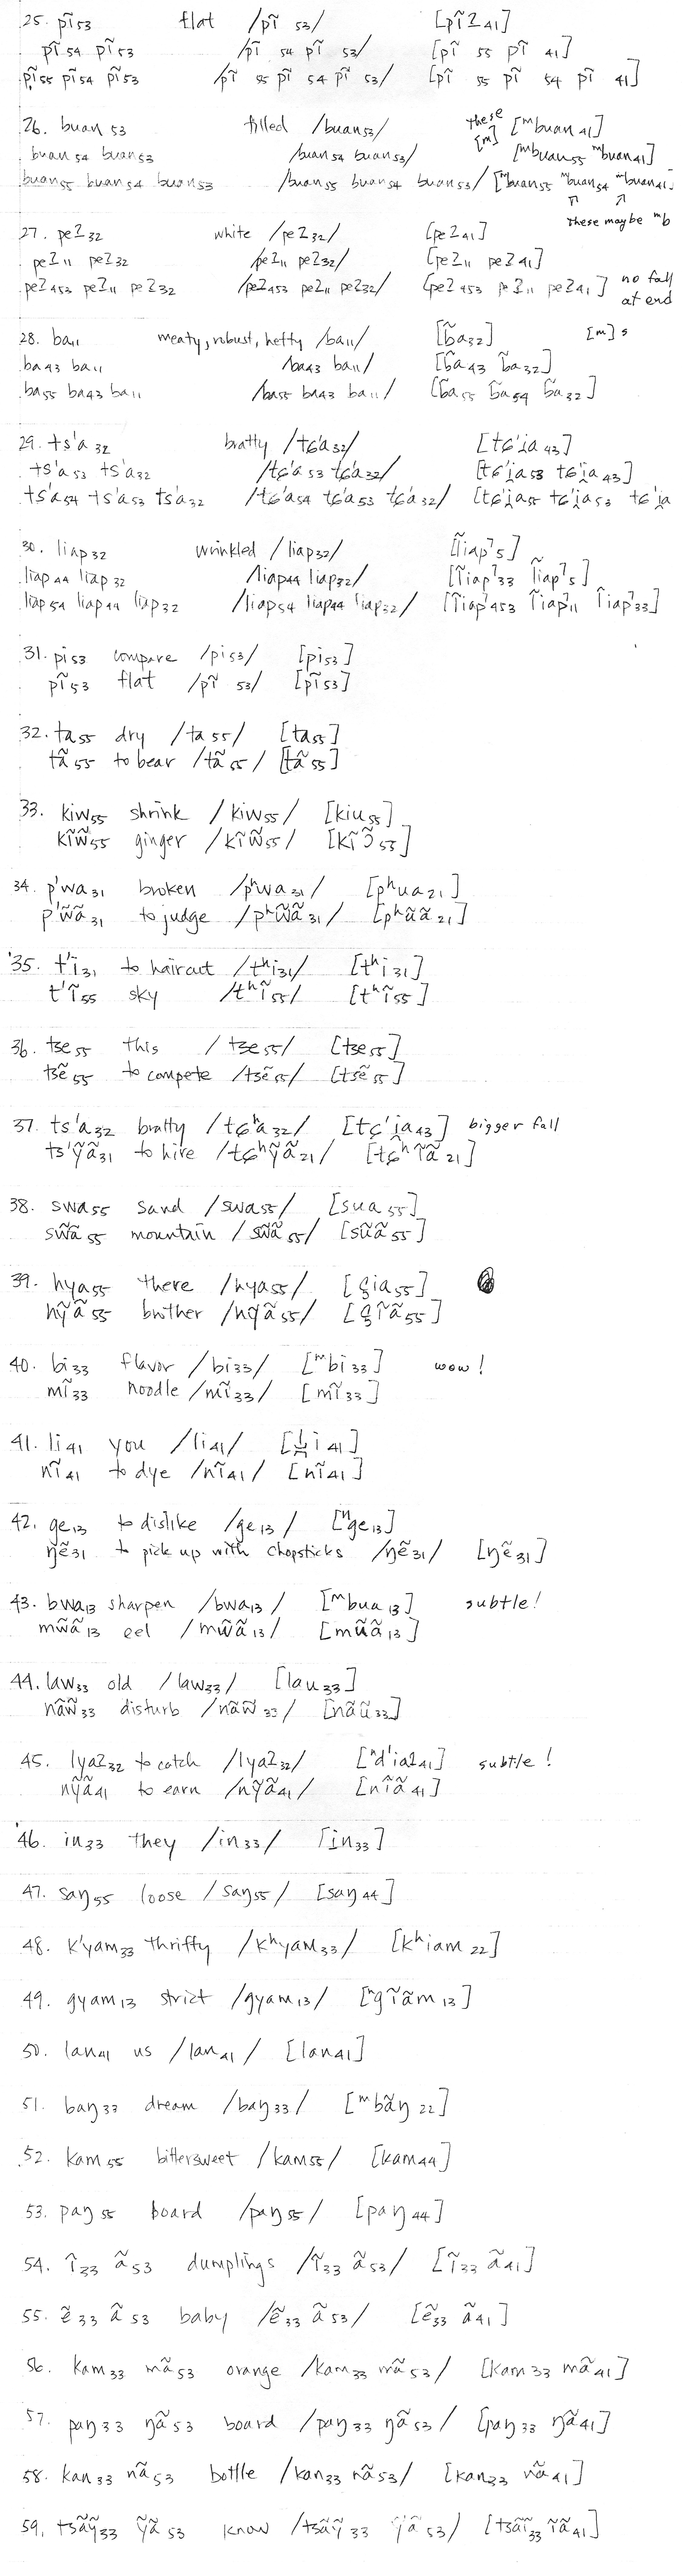 25. pĩ53 flat /pĩ 53/ [pĩʔ41]
pĩ54 pĩ53 /pĩ 54 pĩ 53/ [pĩ 55 pĩ 41]
pĩ55 pĩ54 pĩ53 /pĩ 55 pĩ 54 pĩ 53/ [pĩ 55 pĩ 54 pĩ 41]
26. buan 53 filled /buan53/ these [m] [ᵐbuan41]
buan54 buan53 /buan54 buan53/ [ᵐbuan55 ᵐbuan41]
buan55 buan54 buan53 /buan55 buan54 buan53/ [ᵐbuan55 ᵐbuan54 ᵐbuan41]
↑ ↑
these maybe ᵐb
27. peʔ32 white /peʔ32/ [peʔ41]
peʔ11 peʔ32 /peʔ11 peʔ32/ [peʔ11 peʔ41]
peʔ453 peʔ11 peʔ32 /peʔ453 peʔ11 peʔ32/ [peʔ453 peʔ11 peʔ41] no fall at end
28. ba11 meaty, robust, hefty /ba11/ [b̃a32] [m]s
ba43 ba11 /ba43 ba11/ [b̃a43 b̃a32]
ba55 ba43 ba11 /ba55 ba43 ba11/ [b̃a55 b̃a54 b̃a32]
29. ts'a32 bratty /tɕ'a32/ [tɕ'i̯a43]
ts'a53 ts'a32 /tɕ'a53 tɕ'a32/ [tɕ'i̯a53 tɕ'i̯a43]
ts'a54 ts'a53 ts'a32 /tɕ'a54 tɕ'a53 tɕ'a32/ [tɕ'i̯a55 tɕ'i̯a53 tɕ'i̯a
30. liap32 wrinkled /liap32/ [l̃iap̚5]
liap44 liap32 /liap44 liap32/ [l̃iap̚33 l̃iap̚5]
liap54 liap44 liap32 /liap54 liap44 liap32/ [l̃iap̚453 l̃iap̚11 l̃iap̚33]
31. pi53 compare /pi53/ [pi53]
pĩ53 flat /pĩ 53/ [pĩ53]
32. ta55 dry /ta55/ [ta55]
tã55 to bear /tã55/ [tã55]
33. kiw55 shrink /kiw55/ [kiu55]
kĩw̃55 ginger /kĩw̃55/ [kĩɔ̃53]
34. p'wa31 broken /pʰwa31/ [pʰua21]
p'w̃ã31 to judge /pʰw̃ã31/ [pʰũã21]
35. t'i31 to haircut /tʰi31/ [tʰi31]
t'ĩ55 sky /tʰĩ55/ [tʰĩ55]
36. tse55 this /tse55/ [tse55]
tsẽ55 to compete /tsẽ55/ [tsẽ55]
37. ts'a32 bratty /tɕʰa32/ [tɕ'i̯a43] bigger fall
ts'ỹã31 to hire /tɕʰỹã21/ [tɕʰĩã21]
38. swa55 sand /swa55/ [sua55]
sw̃ã55 mountain /sw̃ã55/ [sũã55]
39. hya55 there /hya55/ [çia55]
hỹã55 brother /hỹã55/ [çĩã55]
40. bi33 flavor /bi33/ [ᵐbi33] wow!
mĩ33 noodle /mĩ33/ [mĩ33]
41. li41 you /li41/ [l̪i41]
nĩ41 to dye /nĩ41/ [nĩ41]
42. ge13 to dislike /ge13/ [ᵑge13]
ŋẽ31 to pick up with chopsticks /ŋẽ31/ [ŋẽ31]
43. bwa13 sharpen /bwa13/ [ᵐbua13] subtle!
mw̃ã13 eel /mw̃ã13/ [mũã13]
44. law33 old /law33/ [lau33]
nãw̃33 disturb /nãw̃33/ [nãũ33]
45. lyaʔ32 to catch /lyaʔ32/ [ⁿdˡiaʔ41] subtle!
nỹã41 to earn /nỹã41/ [nĩã41]
46. in33 they /in33/ [in33]
47. saŋ55 loose /saŋ55/ [saŋ44]
48. k'yam33 thrifty /kʰyam33/ [kʰiam22]
49. gyam13 strict /gyam13/ [ᵑgĩãm13]
50. lan41 us /lan41/ [lan41]
51. baŋ33 dream /baŋ33/ [ᵐbãŋ22]
52. kam55 bittersweet /kam55/ [kam44]
53. paŋ55 board /paŋ55/ [paŋ44]
54. ĩ33 ã53 dumplings /ĩ33 ã53/ [ĩ33 ã41]
55. ẽ33 ã53 baby /ẽ33 ã53/ [ẽ33 ã41]
56. kam33 mã53 orange /kam33 mã53/ [kam33 mã41]
57. paŋ33 ŋã53 board /paŋ33 ŋã53/ [paŋ33 ŋã41]
58. kan33 nã53 bottle /kan33 nã53/ [kan33 nã41]
59. tsãỹ33 ỹã53 know /tsãỹ33 ỹã53/ [tsãĩ33 ĩã41]